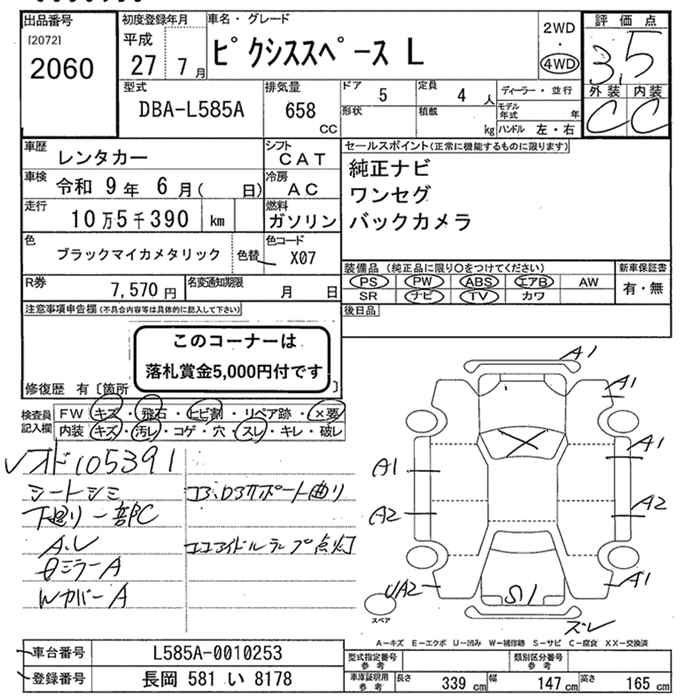 出品番号 初度登録年月 車名・グレード 評価点
[2072] 平成 2WD
2060 27 7月 ピクシススペース L ・ 3.5
4WD
型式 排気量 ドア 定員 ディーラー・並行 外装 内装
DBA-L585A 658 CC 5 4 人 C C
形状 積載 kg モデル年式 年
ハンドル 左・右
車歴 レンタカー シフト CAT セールスポイント(正常に機能するものに限ります)
車検 令和 9年 6月( 日) 冷房 AC 純正ナビ
ワンセグ
走行 10万5千390 km 燃料 ガソリン バックカメラ
色 ブラックマイカメタリック 色替 色コード X07
装備品(純正品に限り○をつけてください) 新車保証書
R券 7,570円 名変通知期限 月 日 PS PW ABS エアB AW 有・無
SR ナビ TV カワ
注意事項申告欄(不具合内容等は具体的に記入して下さい) 後日品
このコーナーは
落札賞金5,000円付です
修復歴 有〔箇所 〕
検査員記入欄 FW キズ・飛石・ヒビ割・リペア跡・×要
内装 キズ・汚レ・コゲ・穴・スレ・キレ・破レ
オド105391
シートシミ コア、D3サポート曲り
下廻り一部C
A.U エコアイドルランプ点灯
ミラーA
WカバーA
A1
A1
A1 A1
A2 A2
UA2 S1 A1
スペア ズレ
A─キズ E─エクボ U─凹み W─補修跡 S─サビ C─腐食 XX─交換済
車台番号 L585A-0010253 型式指定番号 参考 類別区分番号 参考
登録番号 長岡 581 い 8178 車庫証明用 参考 長さ 339 cm 幅 147 cm 高さ 165 cm